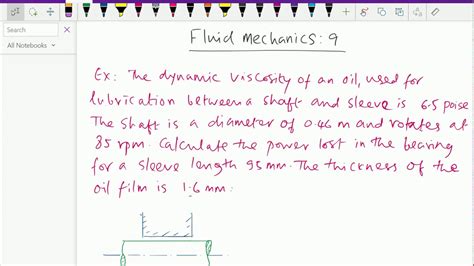 Search
All Notebooks
Fluid mechanics: 9
Ex: The dynamic viscosity of an oil, used for
lubrication between a shaft and sleeve is 6.5 poise
The shaft is a diameter of 0.46 m and rotates at
85 rpm. Calculate the power lost in the bearing
for a sleeve length 95 mm. The thickness of the
oil film is 1.6 mm.